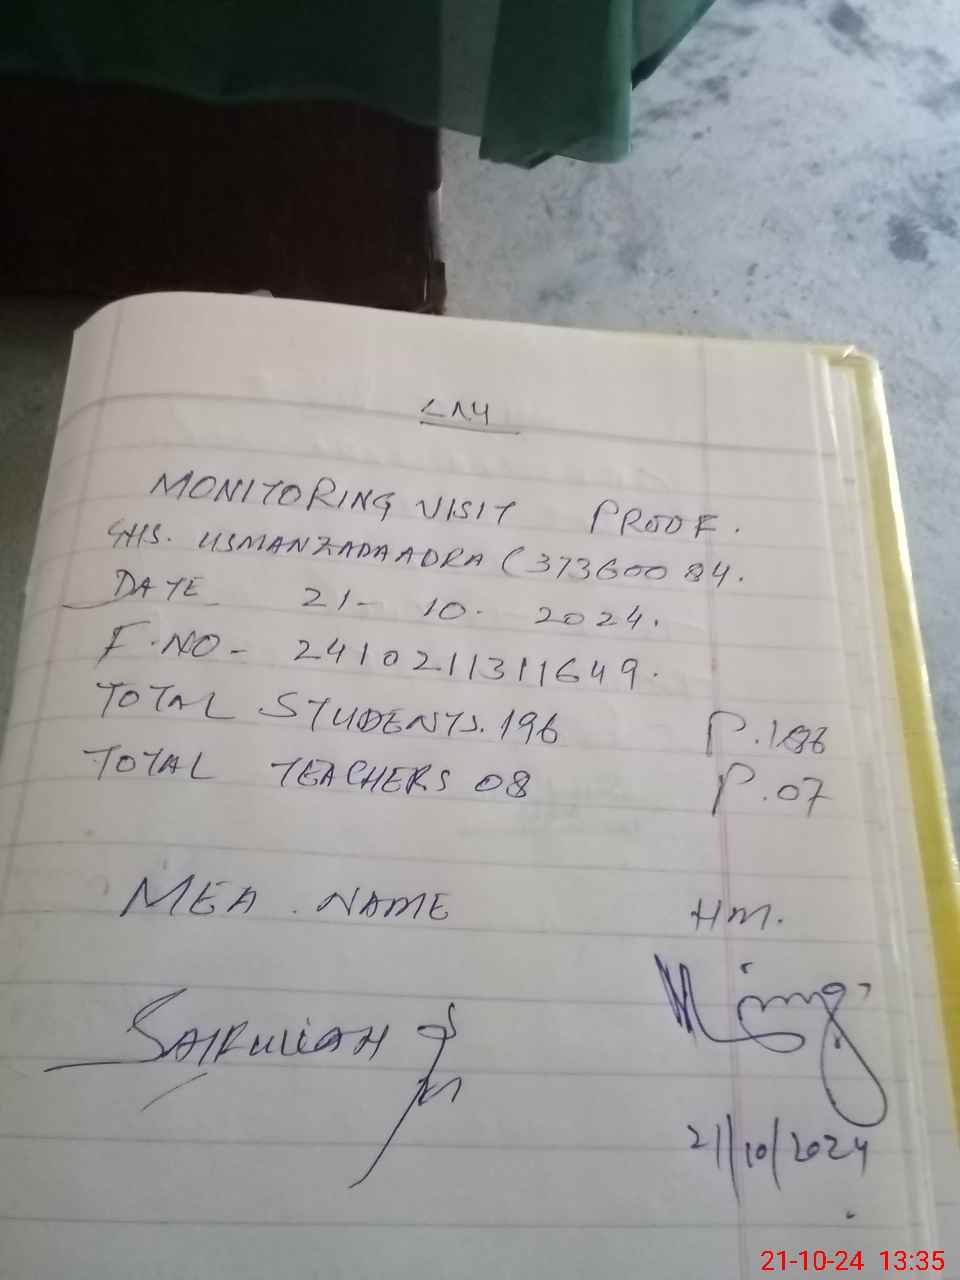 MONITORING VISIT PROOF.
GHS. USMANZADA ADRA (37360084.
DATE 21-10-2024.
F.NO- 2410211311649.
TOTAL STUDENTS. 196 P.186
TOTAL TEACHERS 08 P.07
MEA. NAME HM.
21/10/2024
21-10-24 13:35